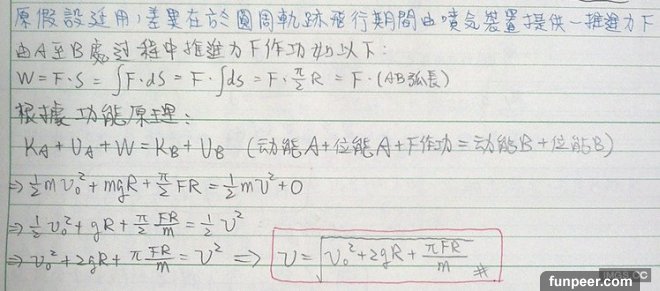 原假設延用,差異在於圓周軌跡飛行期間由噴氣裝置提供一推進力F
由A至B處过程中推進力F作功如以下:
W = F·S = ∫F·ds = F·∫ds = F·π/2 R = F·(AB弧長)
根據功能原理:
K_A + U_A + W = K_B + U_B (动能A+位能A+F作功=动能B+位能B)
⇒ 1/2 m v₀² + mgR + π/2 FR = 1/2 m v² + 0
⇒ 1/2 v₀² + gR + π/2 FR/m = 1/2 v²
⇒ v₀² + 2gR + π FR/m = v² ⇒ v = √(v₀² + 2gR + πFR/m) #
IMGS.CC
funpeer.com